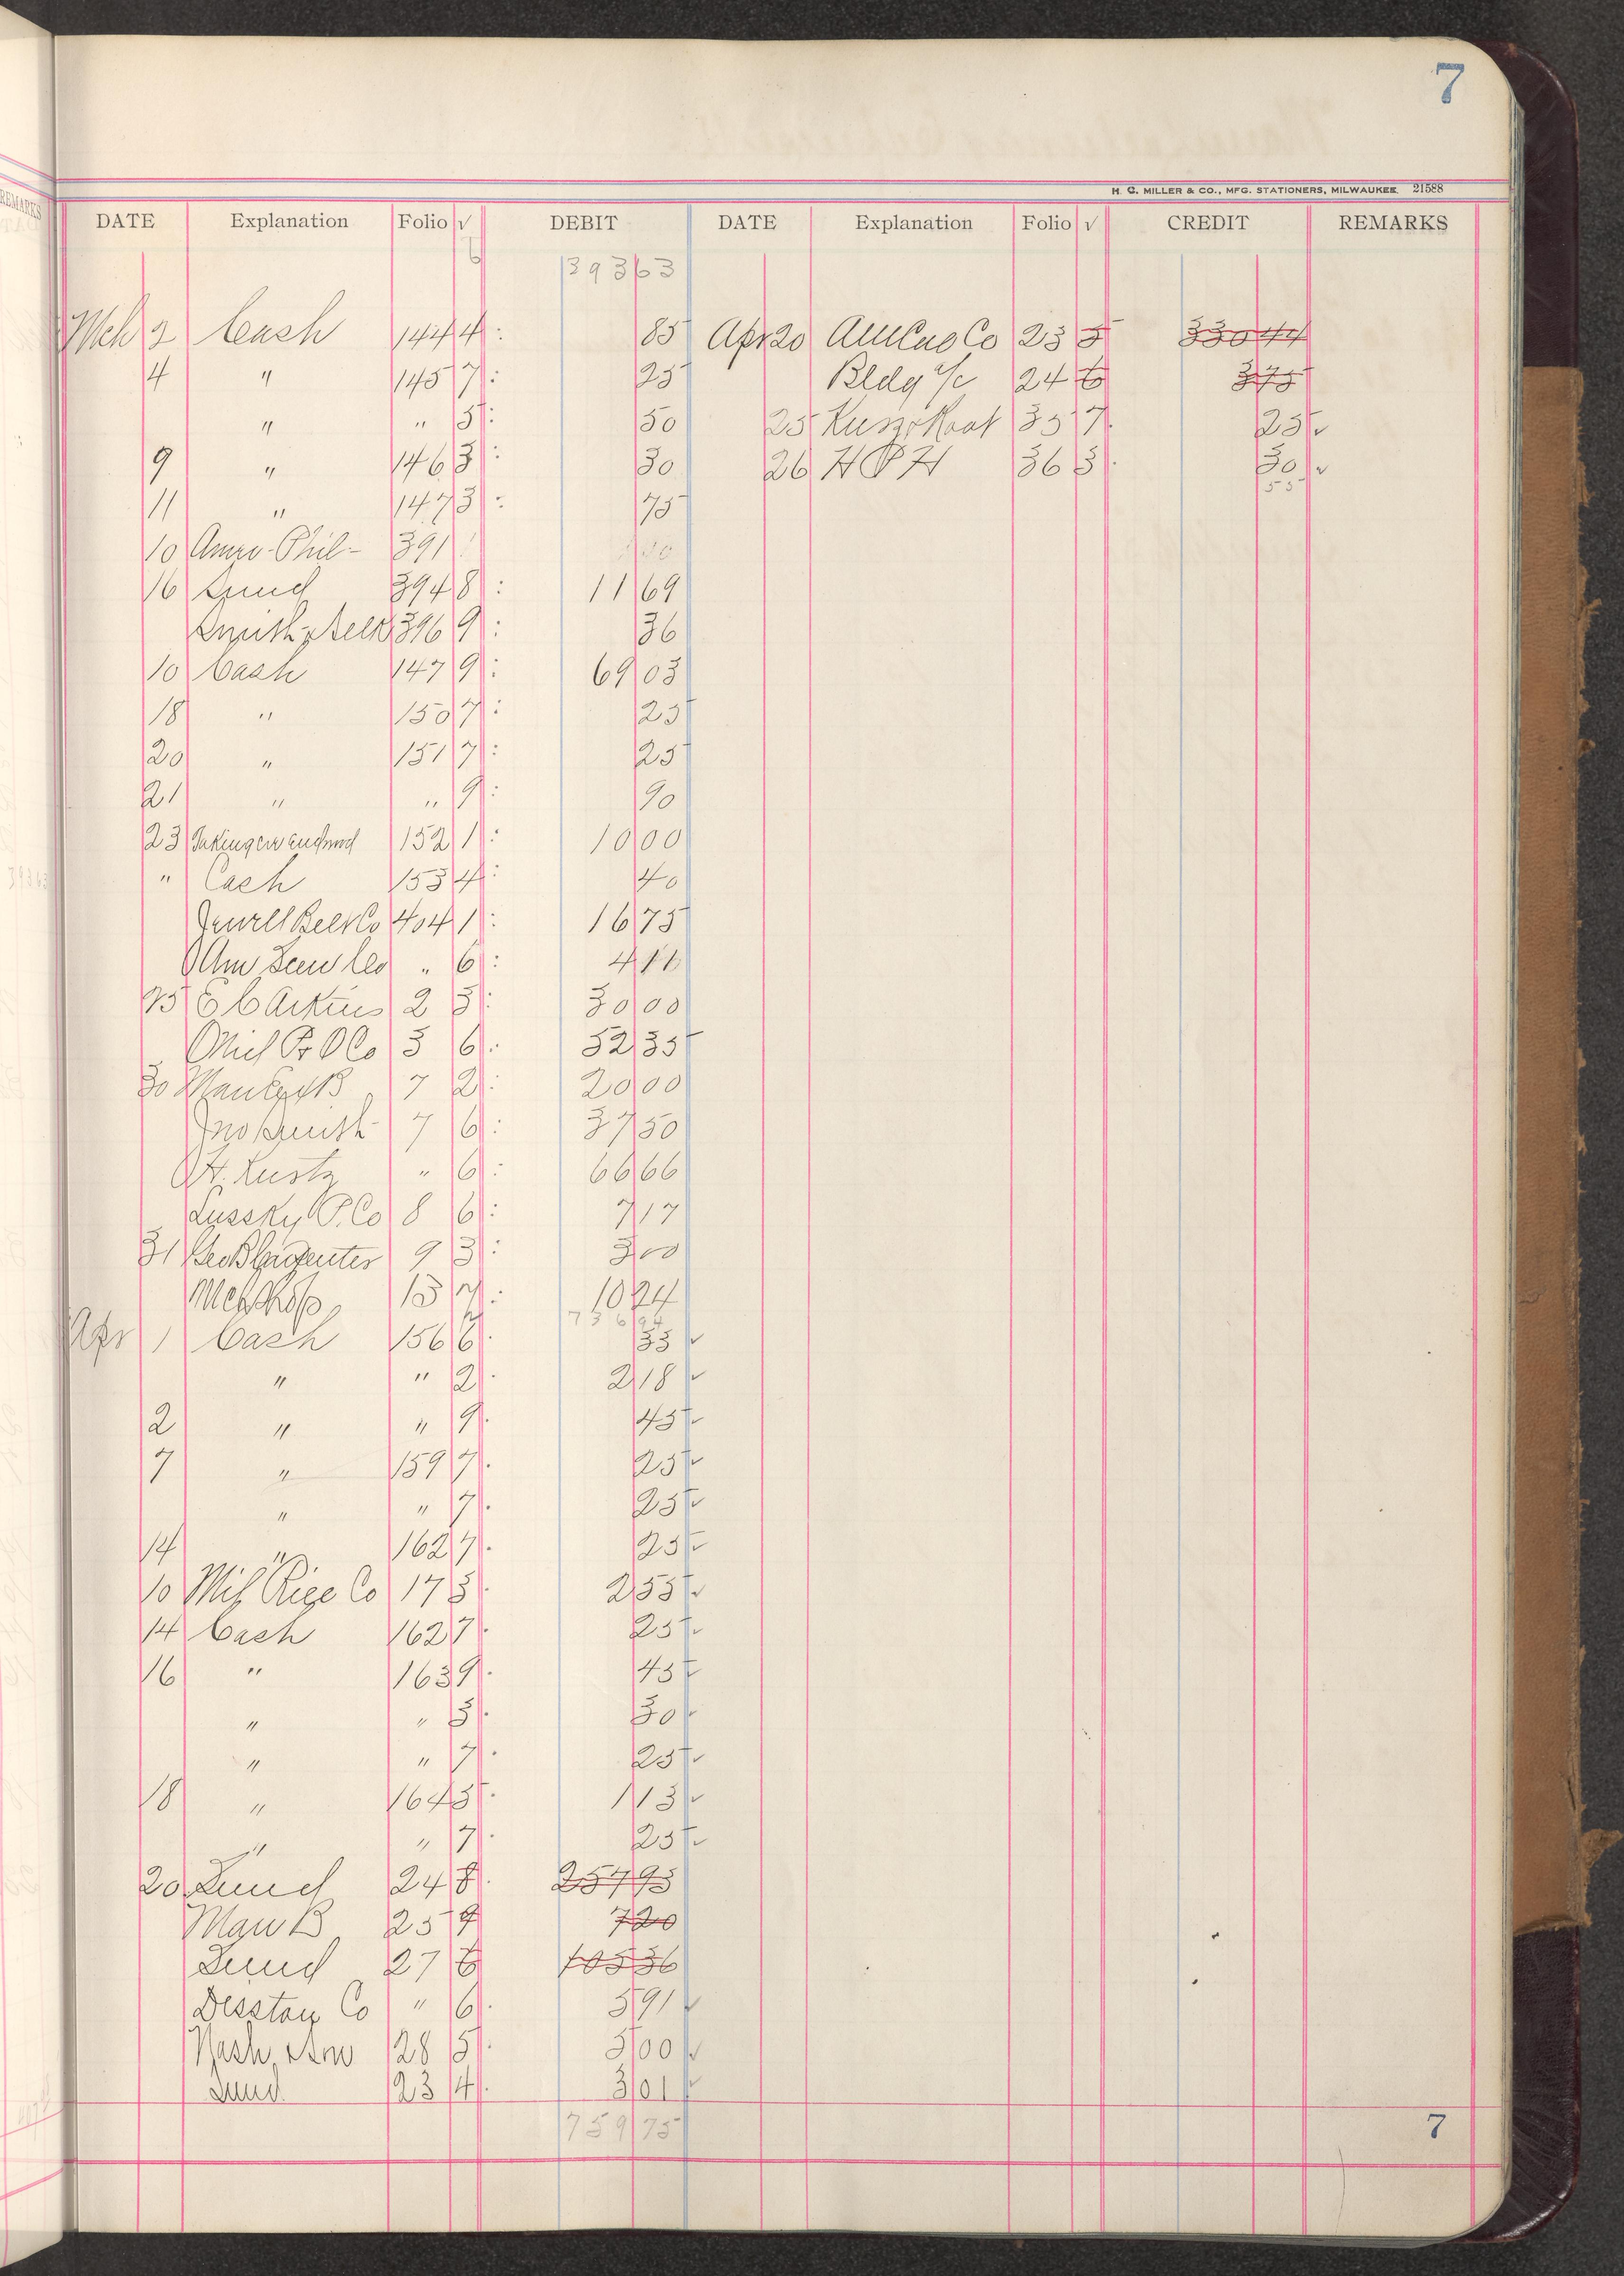 7
H. C. MILLER & CO., MFG. STATIONERS, MILWAUKEE 21588
DATE Explanation Folio √ DEBIT DATE Explanation Folio √ CREDIT REMARKS
6 393 63
Mch 2 Cash 144 4 : 85 Apr 20 23 5 330 44
4 " 145 7 : 25 Bldg a/c 24 6 3 75
" " 5 : 50 25 35 7 25 ✓
9 " 146 3 : 30 26 H P H 36 3 30 ✓
55
11 " 147 3 : 75
10 Amer. Phil - 391
16 Sund 394 8 : 11 69
Smith 396 9 : 36
10 Cash 147 9 : 69 03
18 " 150 7 : 25
20 " 151 7 : 25
21 " " 9 : 90
23 152 1 : 10 00
" Cash 153 4 : 40
Jewell Belt Co 404 1 : 16 75
Am Co " 6 : 4
25 E C Atkins 2 3 : 30 00
Co 3 6 : 52 35
30 7 2 : 20 00
Jno Smith 7 6 : 37 50
" 6 : 66 66
Lussky P. Co 8 6 : 7 17
31 9 3 : 3 00
15 7 : 10 24
736 94
Apr 1 Cash 156 6 : 33 ✓
" " 2 : 2 18 ✓
2 " " 9 : 45 ✓
7 " 159 7 : 25 ✓
" " 7 : 25 ✓
14 " 162 7 : 25 ✓
10 Mil Co 17 3 : 2 55 ✓
14 Cash 162 7 : 25 ✓
16 " 163 9 : 45 ✓
" " 3 : 30 ✓
" " 7 : 25 ✓
18 " 164 5 : 1 13 ✓
" " 7 : 25 ✓
20 Sund 24 8 : 257 95
Man B 25 9 7 20
Sund 27 8 105 36
Disston Co " 6 : 5 91 ✓
Nash 28 5 : 5 00 ✓
Sund 23 4 : 3 01 ✓
759 75
7